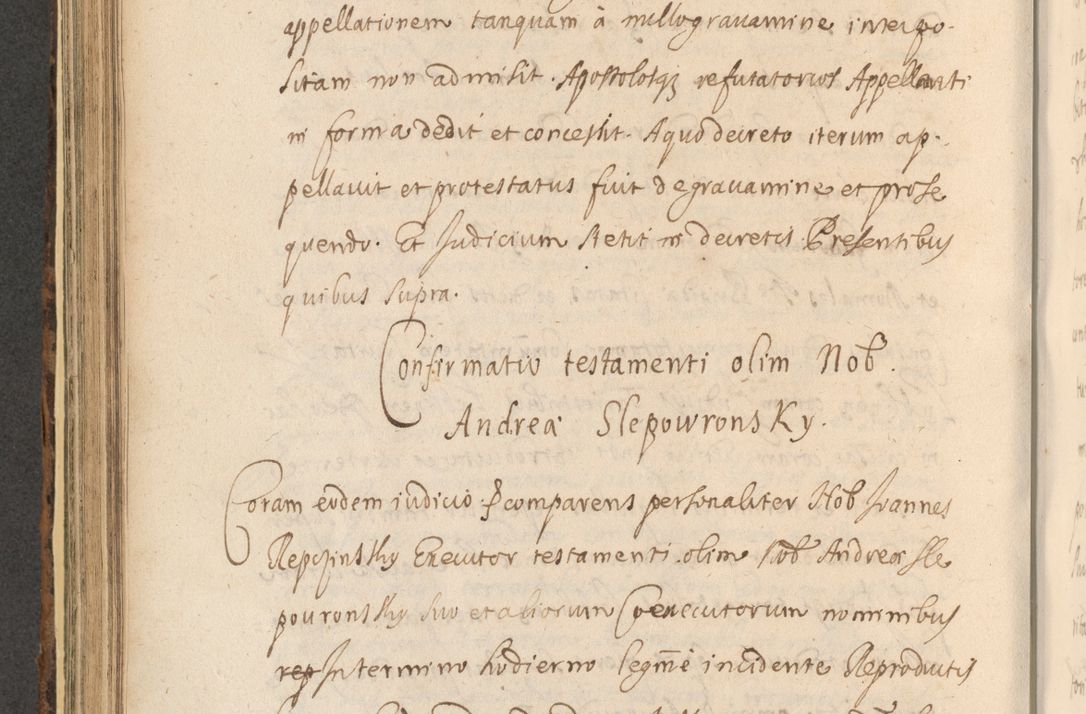 appellationem tanquam à nullogravamine interpo-
sitam non admisit. Apostolosqȝ refutatorios Appellanti
in forma dedit et concessit. Aquo decreto iterum ap-
pellavit et protestatus fuit degravamine et prose
quendo. Et Judicium stetit in decretis. Presentibus
quibus supra.
Confirmatio testamenti olim Nob.
Andreæ Slepowronsky.
Coram eodem iudicio comparens personaliter Nob Joannes
Executor testamenti olim Nob Andreæ Sle
pouronsky suo et aliorum Coexecutorum nominibus
In termino hodierno legmē incidente Reproductis